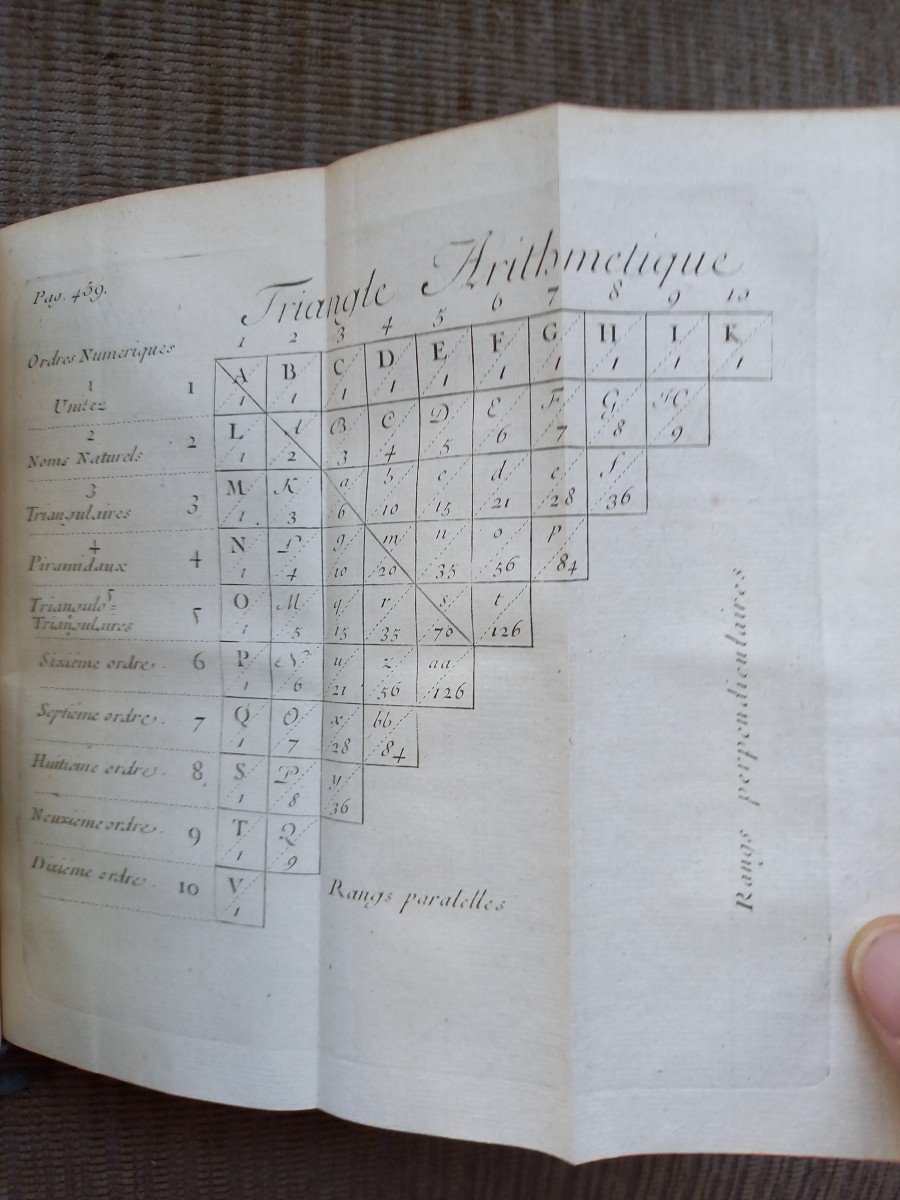 Pag. 459.
Triangle Arithmetique
1 2 3 4 5 6 7 8 9 10
Ordres Numeriques
1
Unitez 1 A B C D E F G H I K
1 1 1 1 1 1 1 1 1 1
2
Noms Naturels 2 L A B C D E F G
1 2 3 4 5 6 7 8 9
3
Triangulaires 3 M K a b c d e f
1 3 6 10 15 21 28 36
4
Piramidaux 4 N L g m n o p
1 4 10 20 35 56 84
5
Triangulo=
Triangulaires 5 O M q r s t
1 5 15 35 70 126
Sixiéme ordre. 6 P N u z aa
1 6 21 56 126
Septiéme ordre. 7 Q O x bb
1 7 28 84
Huitiéme ordre. 8 S P y
1 8 36
Neuxiéme ordre. 9 T Q
1 9
Dixiéme ordre. 10 V
1
Rangs paralelles
Rangs perpendiculaires